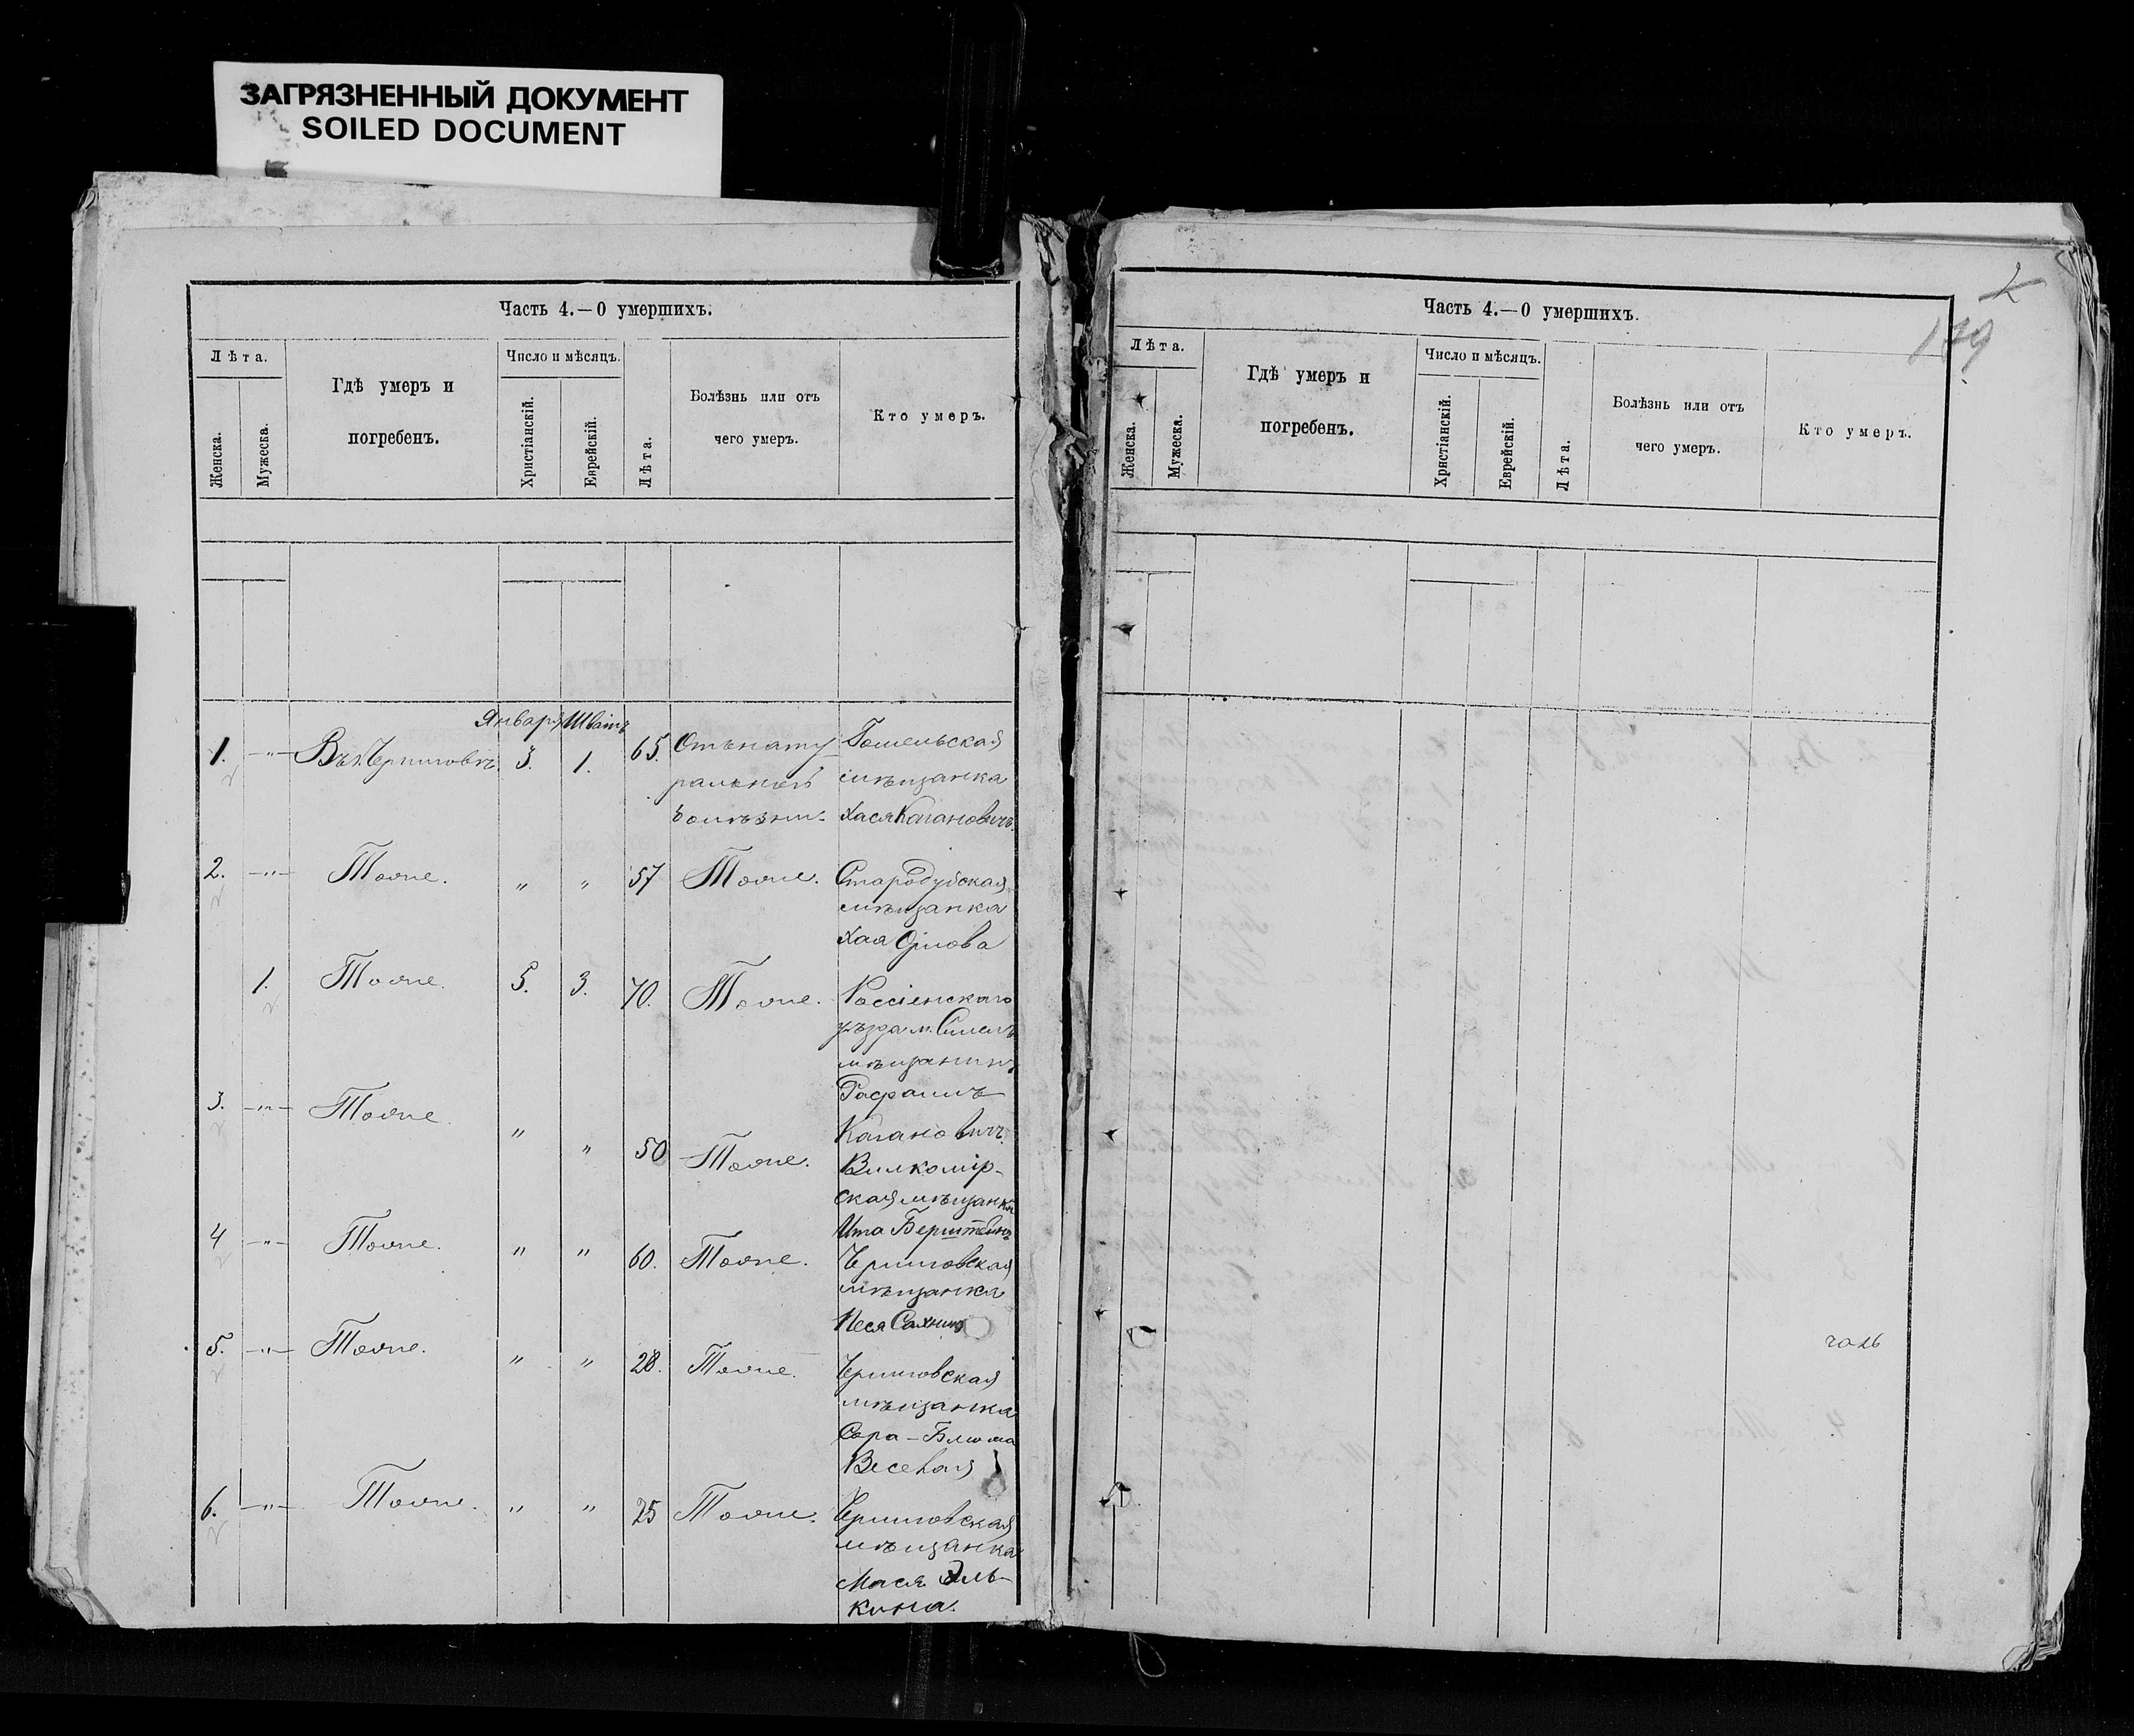 ЗАГРЯЗНЕННЫЙ ДОКУМЕНТ
SOILED DOCUMENT
Часть 4.—О умершихъ.
Лѣта.
Женска.
Мужеска.
Гдѣ умеръ и
погребенъ.
Число и мѣсяцъ.
Христіанскій.
Еврейскій.
Лѣта.
Болѣзнь или отъ
чего умеръ.
Кто умеръ.
Январь Шватъ
1. —"— Въ г. Черниговѣ. 3. 1. 65. Отъ нату Гомельская
ральной мѣщанка
болѣзни. Хася Кагановичъ.
2. —"— Тоже. " " 57 Тоже. Стародубская
мѣщанка
Хая
1. Тоже. 5. 3. 70. Тоже. Россіенскаго
уѣзда м.
мѣщанинъ
Рафаилъ
Кагановичъ.
3. —"— Тоже. " " 50 Тоже. Вилкомір-
ская мѣщанка
Ита Берштейнъ
4 —"— Тоже. " " 60. Тоже. Черниговская
мѣщанка
Песя
5. —"— Тоже. " " 28. Тоже. Черниговская
мѣщанка
Сора-Блюма
Веселая
6. —"— Тоже. " " 25 Тоже. Черниговская
мѣщанка
Мася Эль-
кина.
Часть 4.—О умершихъ.
Лѣта.
Женска.
Мужеска.
Гдѣ умеръ и
погребенъ.
Число и мѣсяцъ.
Христіанскій.
Еврейскій.
Лѣта.
Болѣзнь или отъ
чего умеръ.
Кто умеръ.